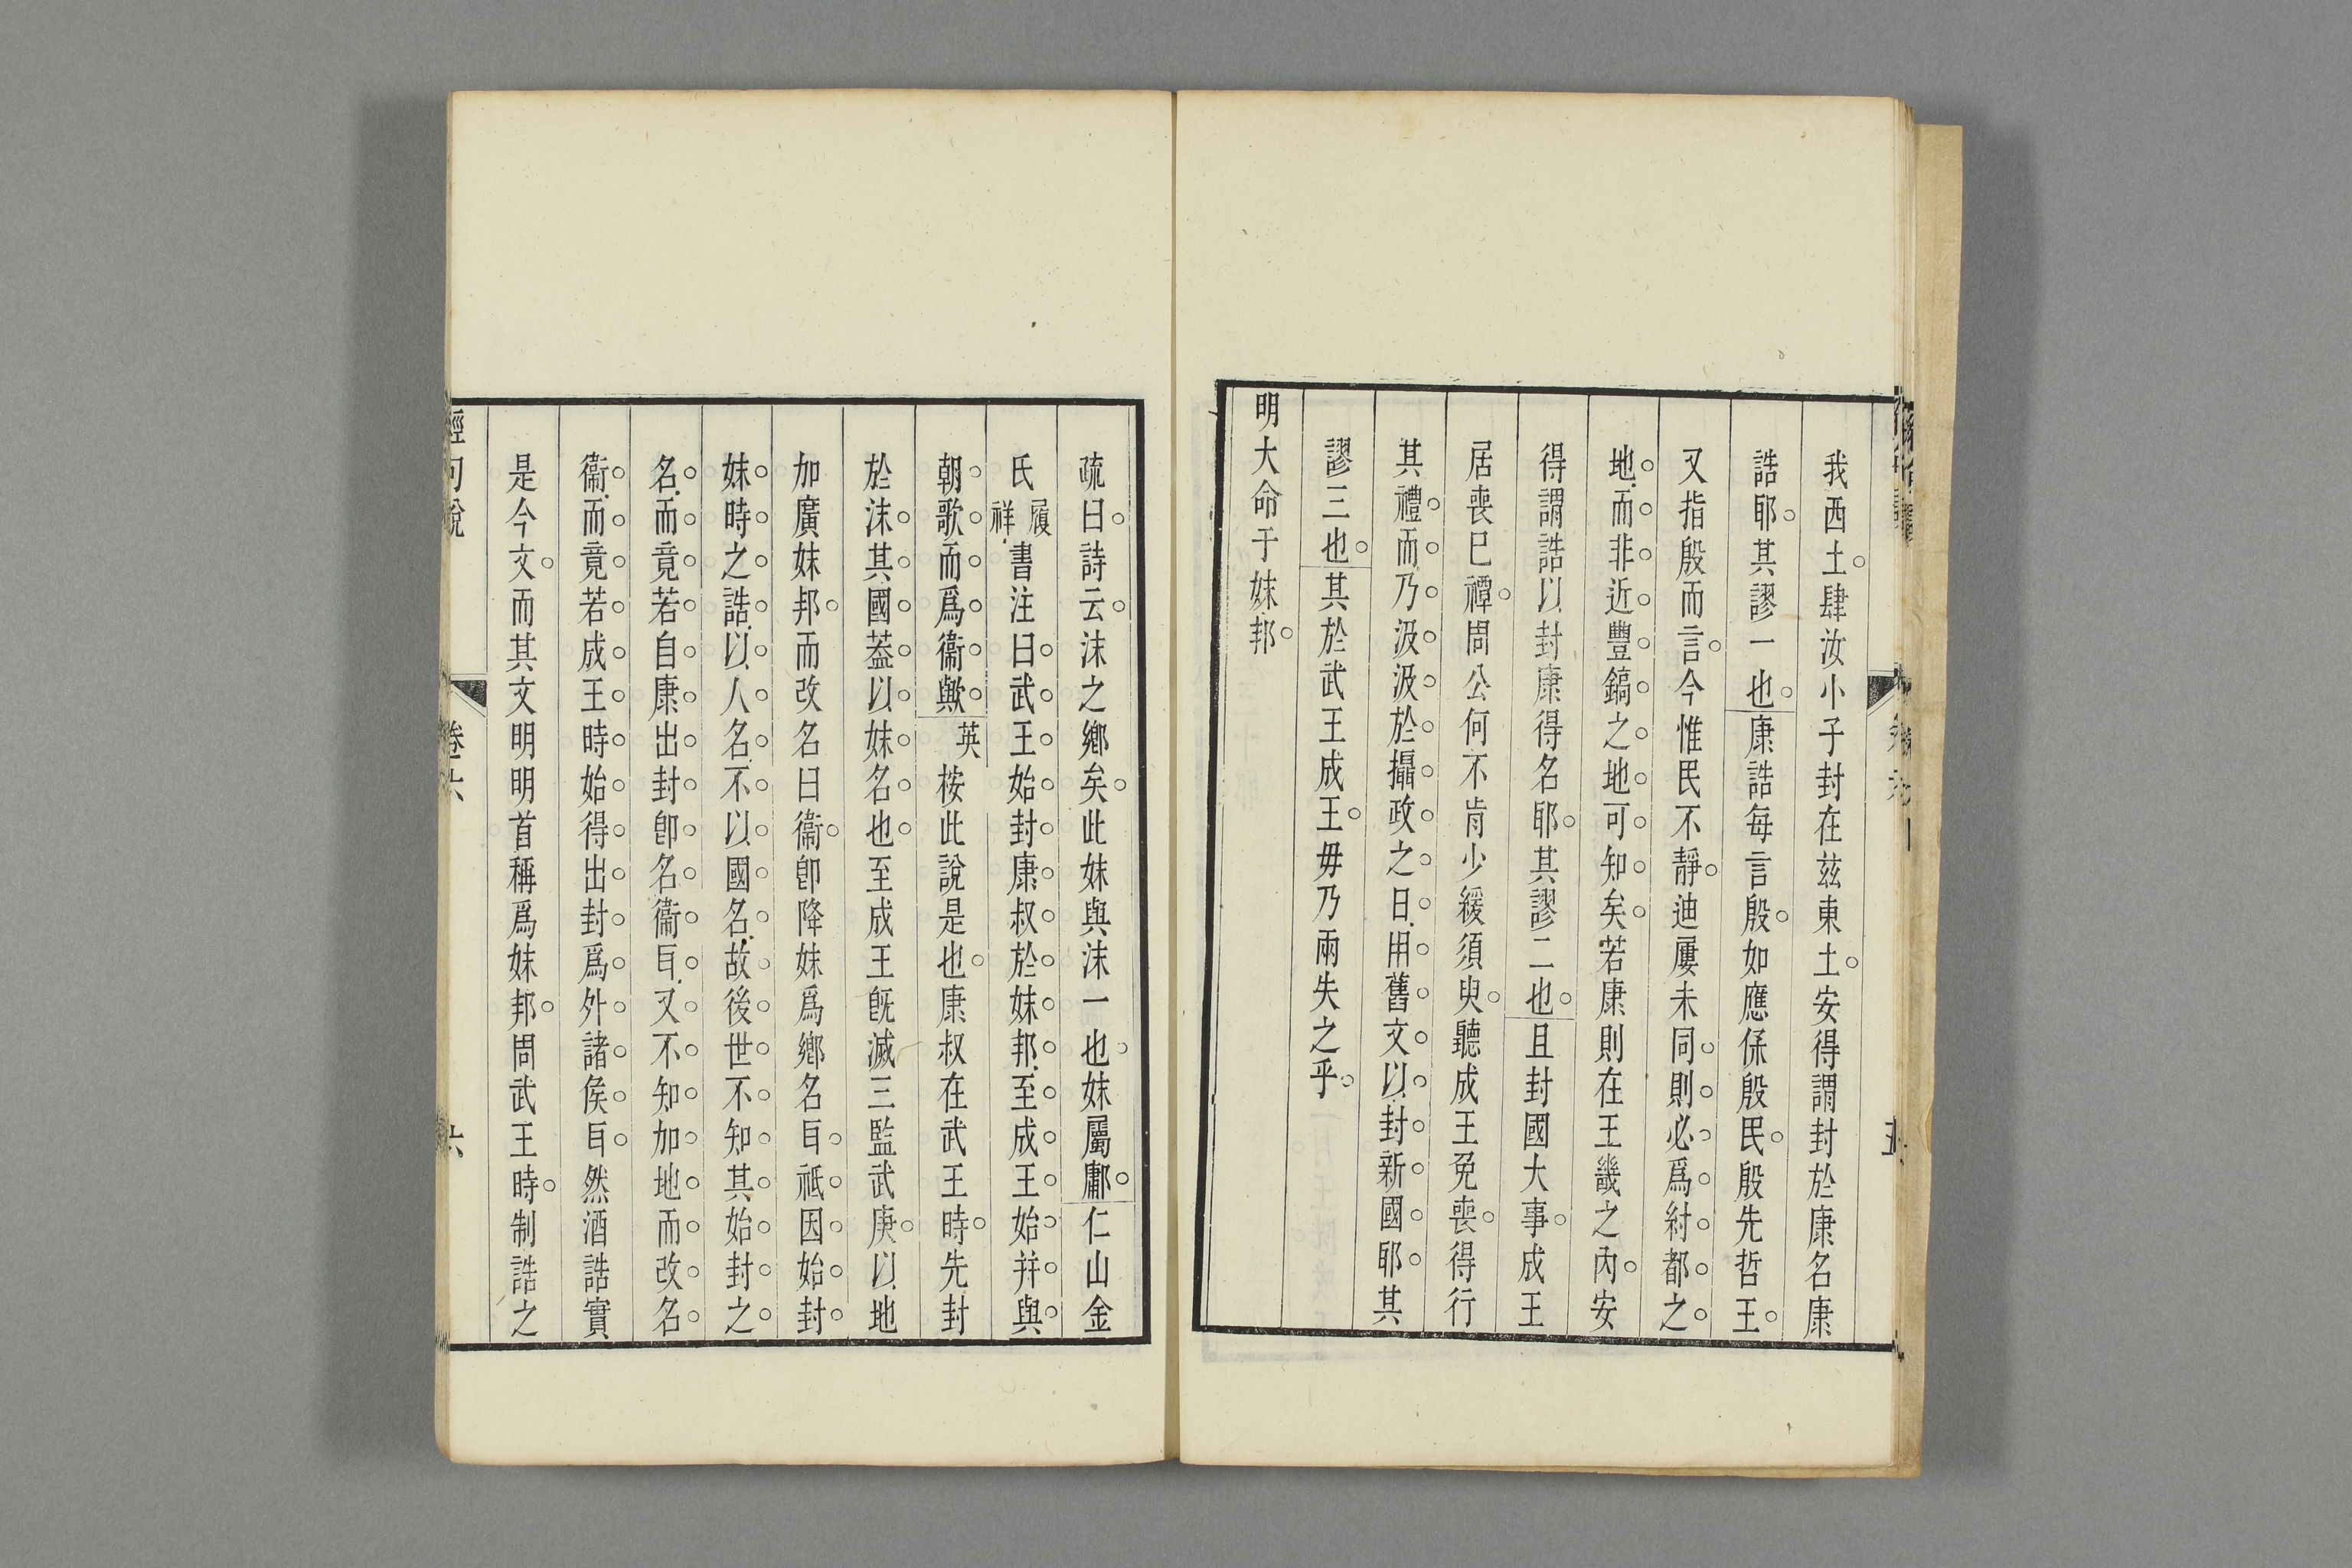 我西土肆汝小子封在玆東土安得謂封於康名康
誥耶其謬一也康誥每言殷如應保殷民殷先哲王
又指殷而言今惟民不靜迪屢未同則必爲紂都之
地而非近豐鎬之地可知矣若康則在王畿之內安
得謂誥以封康得名耶其謬二也且封國大事成王
居喪巳禫周公何不肯少緩須臾聽成王免喪得行
其禮而乃汲汲於攝政之日用舊文以封新國耶其
謬三也其於武王成王毋乃兩失之乎
明大命于妹邦
疏曰詩云沬之鄉矣此妹與沬一也妹屬鄘仁山金
氏履祥書注曰武王始封康叔於妹邦至成王始幷與
朝歌而爲衞歟英桉此說是也康叔在武王時先封
於沬其國葢以妹名也至成王旣滅三監武庚以地
加廣妹邦而改名曰衞卽降妹爲鄉名耳祇因始封
妹時之誥以人名不以國名故後世不知其始封之
名而竟若自康出封卽名衞耳又不知加地而改名
衞而竟若成王時始得出封爲外諸侯耳然酒誥實
是今文而其文明明首稱爲妹邦周武王時制誥之
經句說
卷六
六